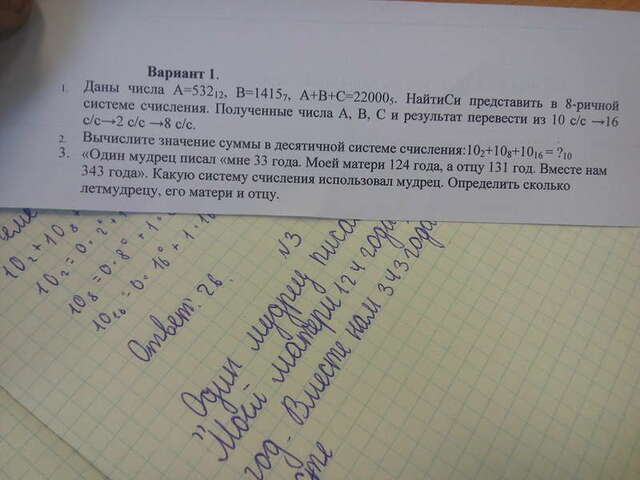 Вариант 1.
1. Даны числа A=532₁₂, B=1415₇, A+B+C=22000₅. НайтиСи представить в 8-ричной
системе счисления. Полученные числа A, B, C и результат перевести из 10 с/с →16
с/с→2 с/с →8 с/с.
2. Вычислите значение суммы в десятичной системе счисления:10₂+10₈+10₁₆ = ?₁₀
3. «Один мудрец писал «мне 33 года. Моей матери 124 года, а отцу 131 год. Вместе нам
343 года». Какую систему счисления использовал мудрец. Определить сколько
летмудрецу, его матери и отцу.
10₂+10₈+
10₂=0·2⁰+
10₈=0·8⁰+1·
10₁₆=0·16⁰+1·16
Ответ: 26.
№3
"Один мудрец писал
Моей матери 124 года
год. Вместе нам 343 года